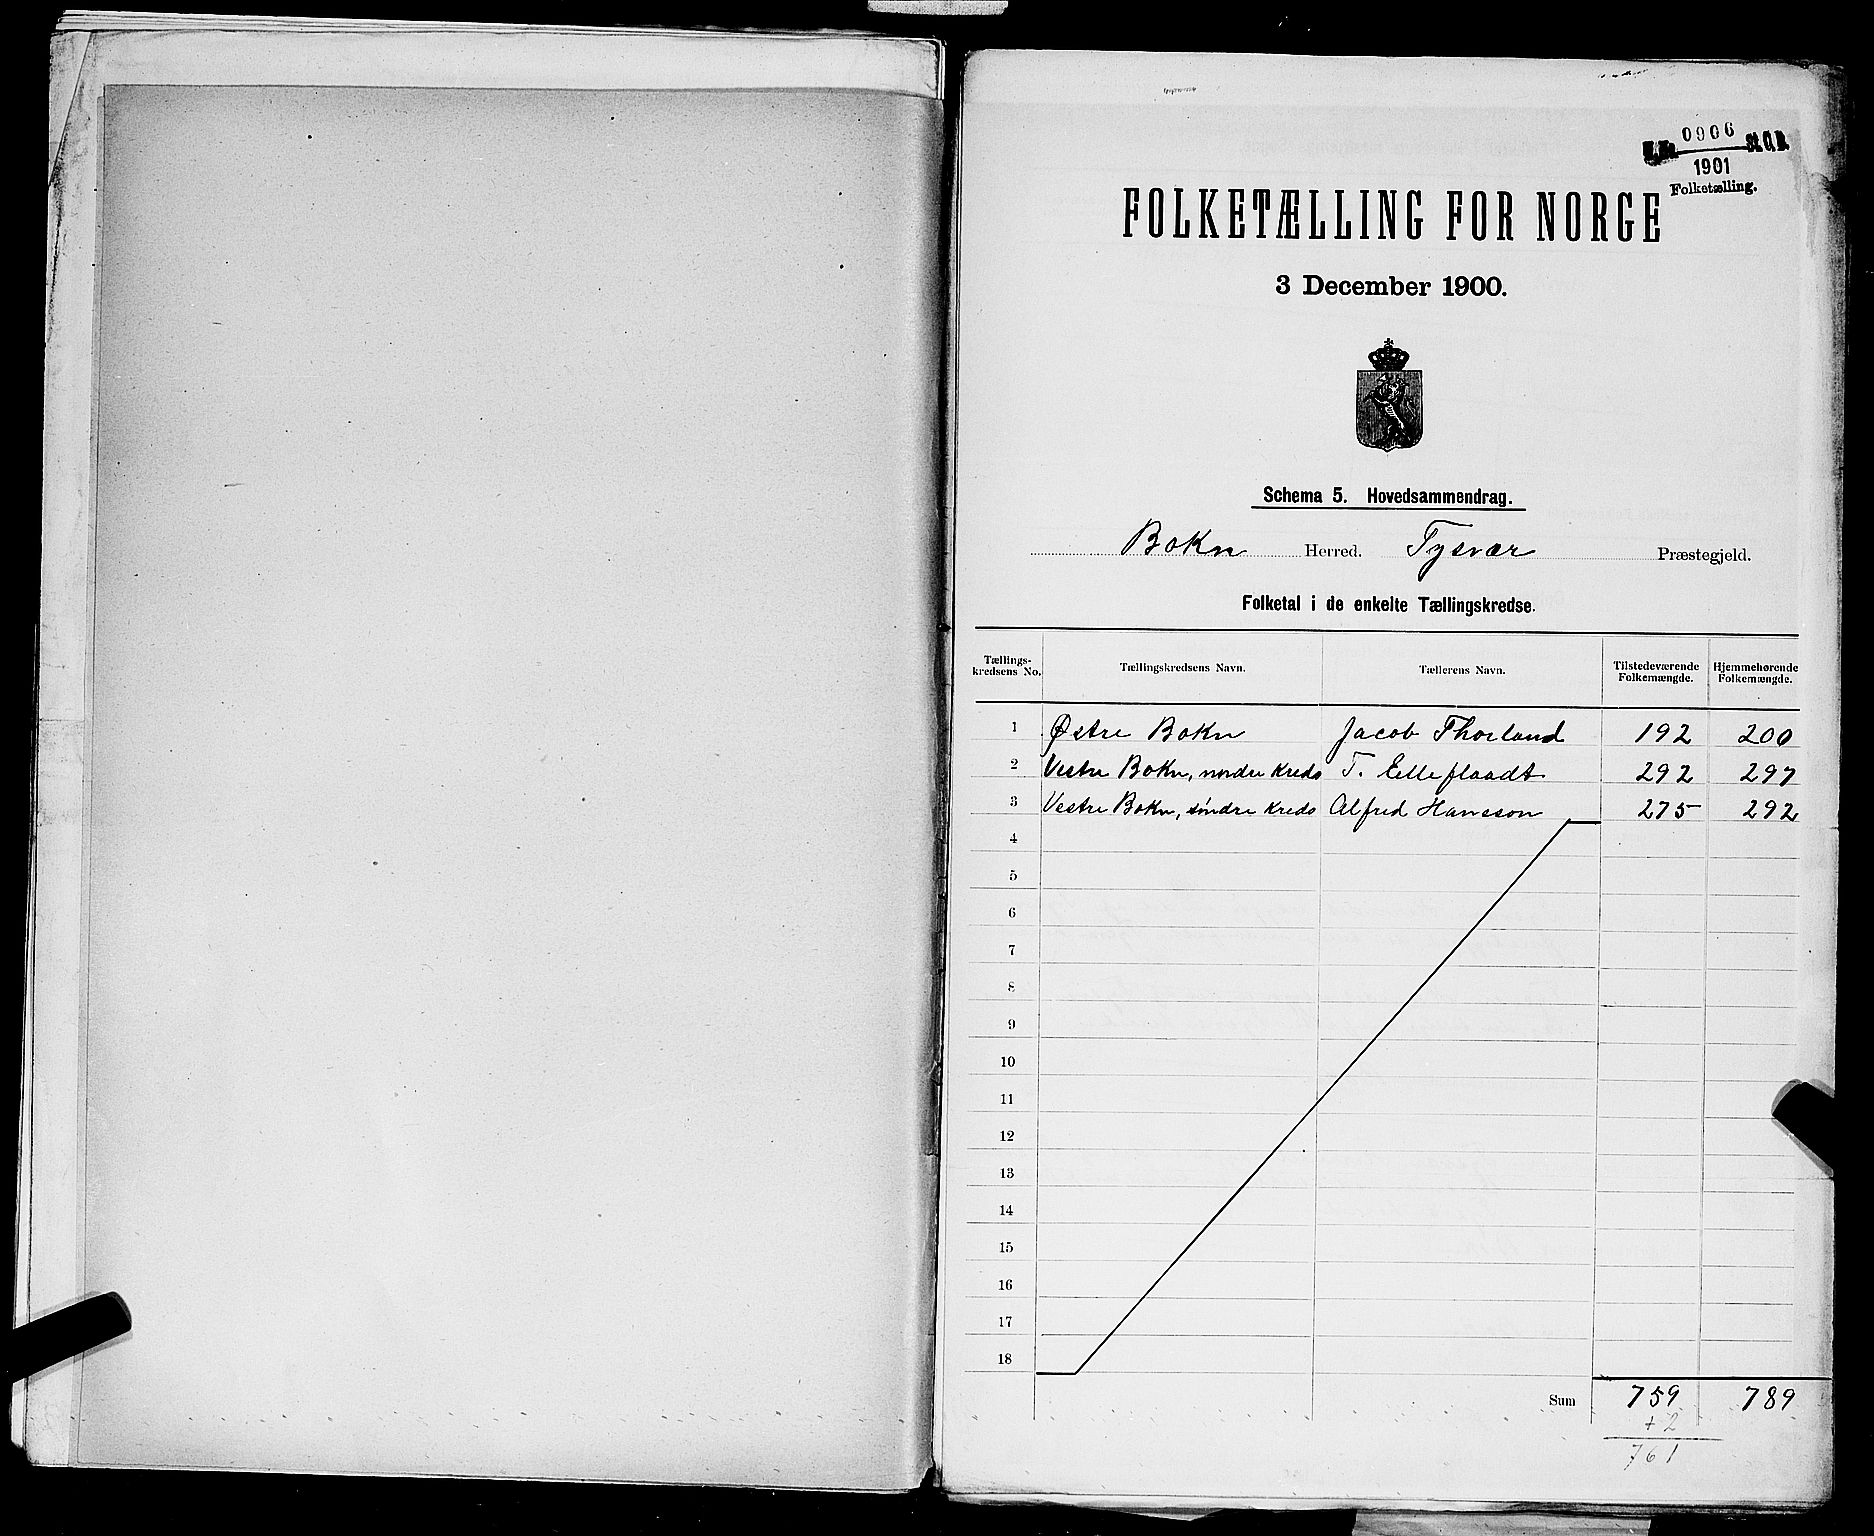 0906
1901
Folketælling.
FOLKETÆLLING FOR NORGE
3 December 1900.
Schema 5. Hovedsammendrag.
Bokn Herred. Tysvær Præstegjeld.
Folketal i de enkelte Tællingskredse.
Tællings-kredsens No. Tællingskredsens Navn. Tællerens Navn. Tilstedeværende Folkemængde. Hjemmehørende Folkemængde.
1 Østre Bokn Jacob Thorland 192 200
2 Vestre Bokn, nordre Kreds T. 292 297
3 Vestre Bokn, søndre Kreds Alfred Hansson 275 292
4
5
6
7
8
9
10
11
12
13
14
15
16
17
18
Sum 759 789
+2
761